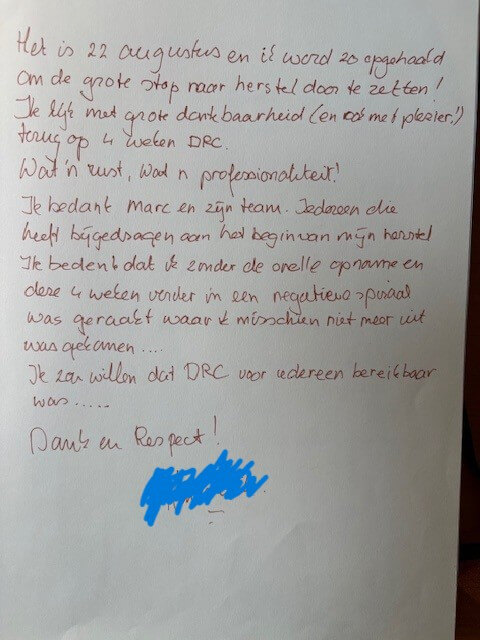 Het is 22 augustus en ik word zo opgehaald
om de grote stap naar herstel door te zetten!
Ik kijk met grote dankbaarheid (en ook met plezier!)
terug op 4 weken DRC.
Wat 'n rust, Wat n professionaliteit!
Ik bedank Marc en zijn team. Iedereen die
heeft bijgedragen aan het begin van mijn herstel
Ik bedenk dat ik zonder de snelle opname en
deze 4 weken verder in een negatieve spiraal
was geraakt waar ik misschien niet meer uit
was gekomen ....
Ik zou willen dat DRC voor iedereen bereikbaar
was.....
Dank en Respect!